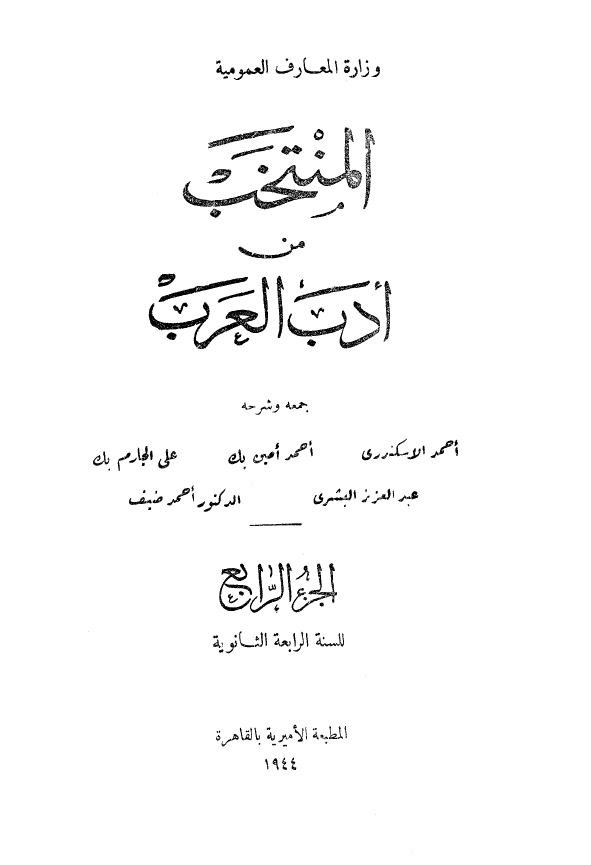 وزارة المعارف العمومية
المنْتخَبْ
من
أدَبَ العَرَبْ
جمعه وشرحه
أحمد الاسكندرى أحمد أمين بك على الجارم بك
عبد العزيز البشرى الدكتور أحمد ضيف
الجزءُ الرّابع
للسنة الرابعة الثانوية
المطبعة الأميرية بالقاهرة
١٩٤٤